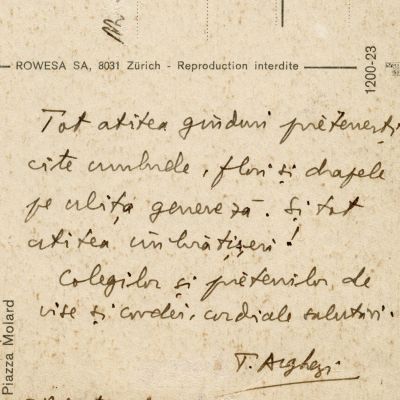 ROWESA SA, 8031 Zürich - Reproduction interdite
1200-23
Tot atîtea gînduri prietenești
cîte umbrele, flori și drapele
pe ulița genereză. Și tot
atîtea îmbrățișeri!
Colegilor și prietenilor, de
vise și condei, cordiale salutări.
T. Arghezi
Piazza Molard